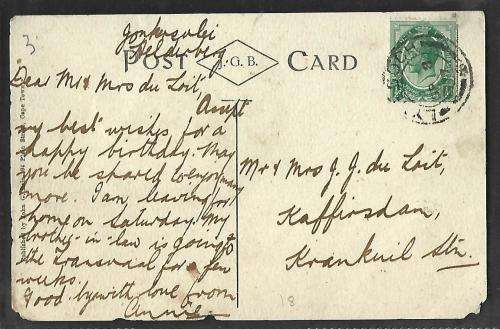 3.
Jonkersvlei
Helderberg
POST J.G.B. CARD
Dear Mr & Mrs du Toit,
Accept
my best wishes for a
happy birthday. May
you be spared to enjoy many
more. I am leaving for
home on Saturday. My
brother-in-law is going to
the Transvaal for a few
weeks.
Good bye with love from
Annie.
Mr & Mrs J. J. du Toit,
Kaffirsdam,
Krankuil Stn.
18